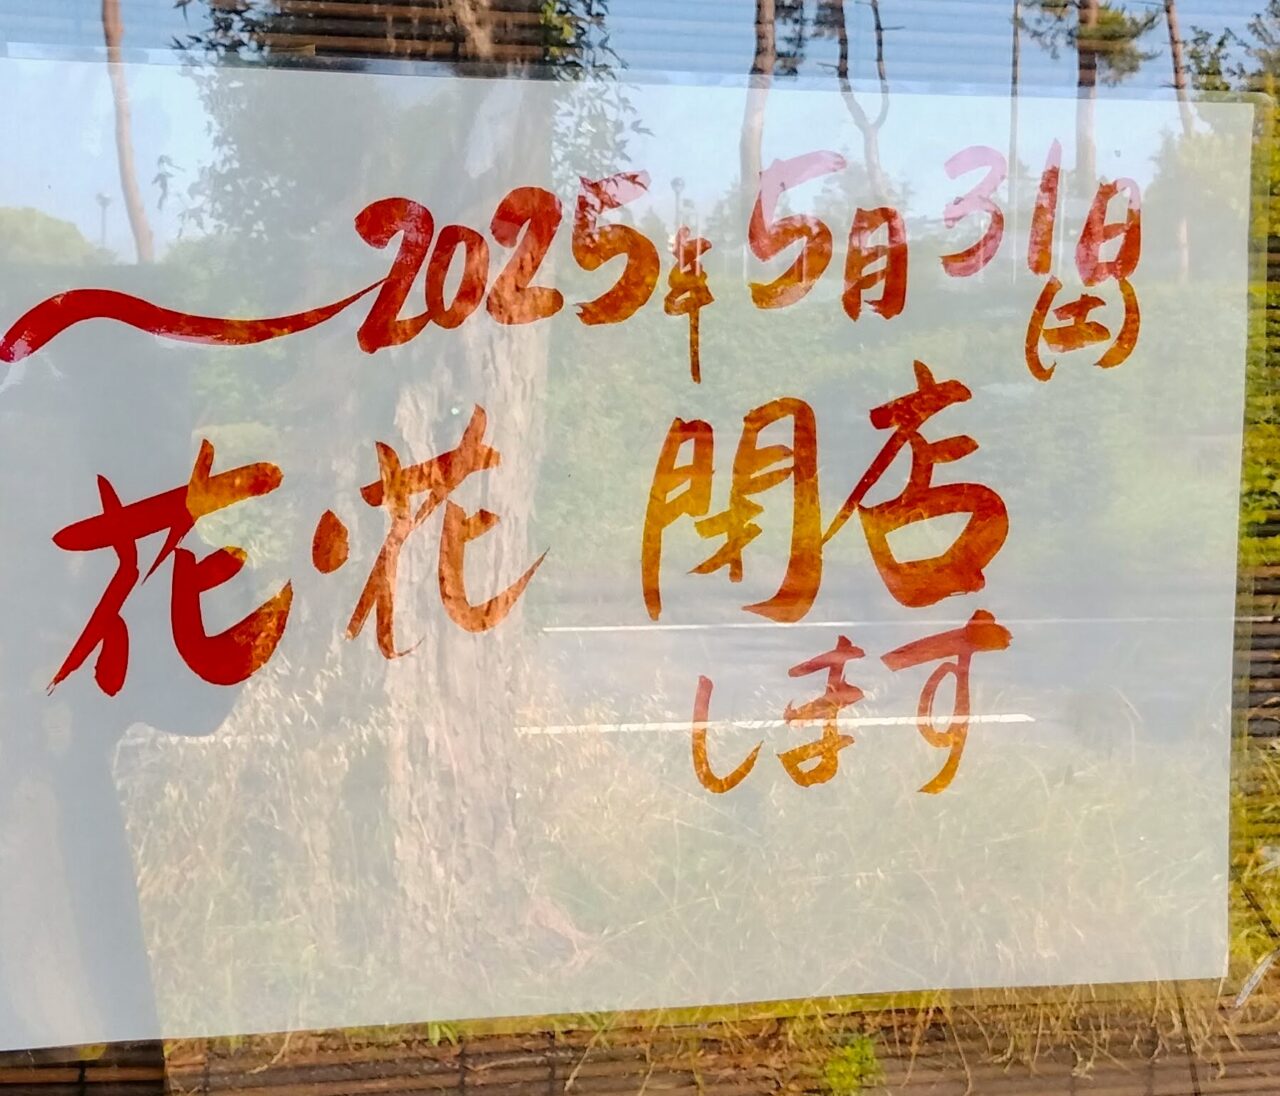 〜2025年5月31日(土)
花・花 閉店
します